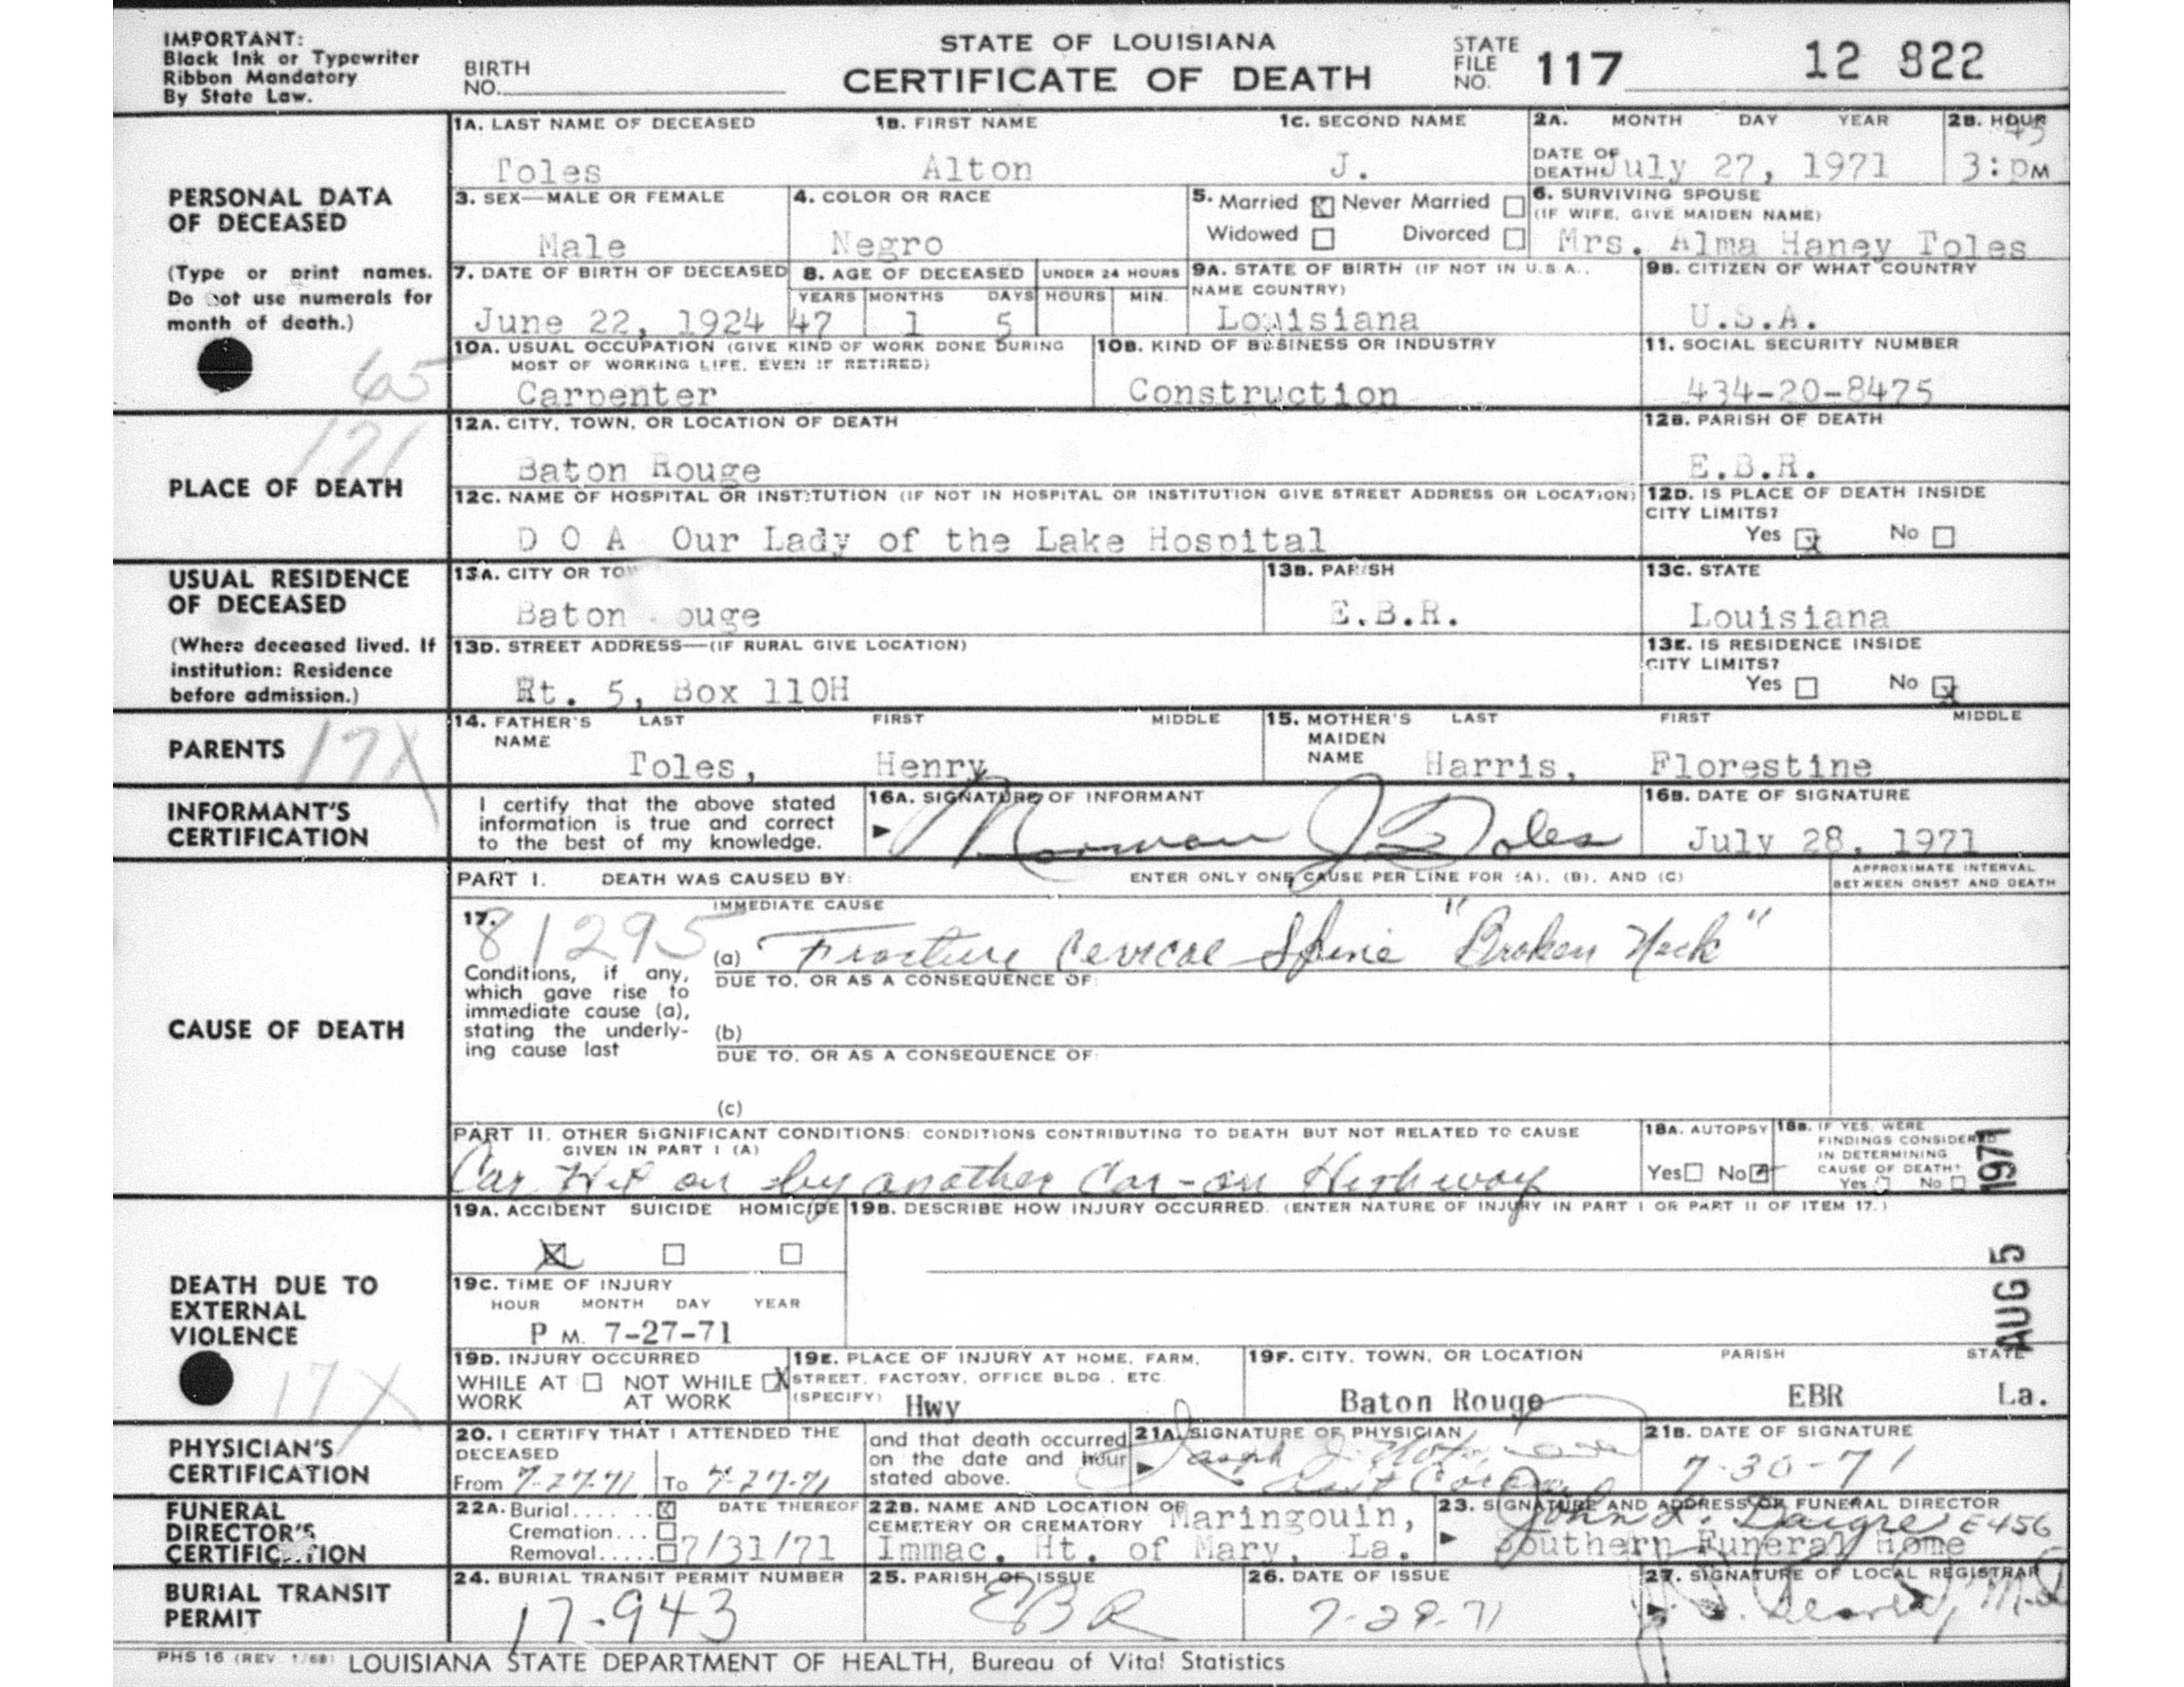 IMPORTANT:
Black Ink or Typewriter
Ribbon Mandatory
By State Law.
BIRTH
NO.
STATE OF LOUISIANA
CERTIFICATE OF DEATH
STATE
FILE
NO. 117 12 822
PERSONAL DATA
OF DECEASED
(Type or print names.
Do not use numerals for
month of death.)
65
1A. LAST NAME OF DECEASED 1B. FIRST NAME 1C. SECOND NAME
Toles Alton J.
2A. MONTH DAY YEAR
DATE OF
DEATH July 27, 1971
2B. HOUR
45
3: PM
3. SEX—MALE OR FEMALE
Male
4. COLOR OR RACE
Negro
5. Married Never Married
Widowed Divorced
6. SURVIVING SPOUSE
(IF WIFE, GIVE MAIDEN NAME)
Mrs. Alma Haney Toles
7. DATE OF BIRTH OF DECEASED
June 22, 1924
8. AGE OF DECEASED UNDER 24 HOURS
YEARS MONTHS DAYS HOURS MIN.
47 1 5
9A. STATE OF BIRTH (IF NOT IN U.S.A.,
NAME COUNTRY)
Louisiana
9B. CITIZEN OF WHAT COUNTRY
U.S.A.
10A. USUAL OCCUPATION (GIVE KIND OF WORK DONE DURING
MOST OF WORKING LIFE, EVEN IF RETIRED)
Carpenter
10B. KIND OF BUSINESS OR INDUSTRY
Construction
11. SOCIAL SECURITY NUMBER
434-20-8475
PLACE OF DEATH
121
12A. CITY, TOWN, OR LOCATION OF DEATH
Baton Rouge
12B. PARISH OF DEATH
E.B.R.
12C. NAME OF HOSPITAL OR INSTITUTION (IF NOT IN HOSPITAL OR INSTITUTION GIVE STREET ADDRESS OR LOCATION)
D O A Our Lady of the Lake Hospital
12D. IS PLACE OF DEATH INSIDE
CITY LIMITS?
Yes No
USUAL RESIDENCE
OF DECEASED
(Where deceased lived. If
institution: Residence
before admission.)
13A. CITY OR TOW
Baton ouge
13B. PARISH
E.B.R.
13C. STATE
Louisiana
13D. STREET ADDRESS—(IF RURAL GIVE LOCATION)
Rt. 5, Box 110H
13E. IS RESIDENCE INSIDE
CITY LIMITS?
Yes No
PARENTS
17X
14. FATHER'S LAST FIRST MIDDLE
NAME
Toles, Henry
15. MOTHER'S LAST FIRST MIDDLE
MAIDEN
NAME Harris, Florestine
INFORMANT'S
CERTIFICATION
I certify that the above stated
information is true and correct
to the best of my knowledge.
16A. SIGNATURE OF INFORMANT
Norman J. Toles
16B. DATE OF SIGNATURE
July 28, 1971
CAUSE OF DEATH
PART I. DEATH WAS CAUSED BY: ENTER ONLY ONE CAUSE PER LINE FOR (A), (B), AND (C)
APPROXIMATE INTERVAL
BETWEEN ONSET AND DEATH
17.
81295
IMMEDIATE CAUSE
(a) Fracture Cervical Spine "Broken Neck"
Conditions, if any,
which gave rise to
immediate cause (a),
stating the underly-
ing cause last
DUE TO, OR AS A CONSEQUENCE OF:
(b)
DUE TO, OR AS A CONSEQUENCE OF:
(c)
PART II. OTHER SIGNIFICANT CONDITIONS: CONDITIONS CONTRIBUTING TO DEATH BUT NOT RELATED TO CAUSE
GIVEN IN PART I (A)
Car Hit on by another Car-on Highway
18A. AUTOPSY
Yes No
18B. IF YES, WERE
FINDINGS CONSIDERED
IN DETERMINING
CAUSE OF DEATH?
Yes No
AUG 5 1971
DEATH DUE TO
EXTERNAL
VIOLENCE
17X
19A. ACCIDENT SUICIDE HOMICIDE
19B. DESCRIBE HOW INJURY OCCURRED. (ENTER NATURE OF INJURY IN PART I OR PART II OF ITEM 17.)
19C. TIME OF INJURY
HOUR MONTH DAY YEAR
P M. 7-27-71
19D. INJURY OCCURRED
WHILE AT NOT WHILE X
WORK AT WORK
19E. PLACE OF INJURY AT HOME, FARM,
STREET, FACTORY, OFFICE BLDG., ETC.
(SPECIFY) Hwy
19F. CITY, TOWN, OR LOCATION PARISH STATE
Baton Rouge EBR La.
PHYSICIAN'S
CERTIFICATION
20. I CERTIFY THAT I ATTENDED THE
DECEASED
From 7-27-71 To 7-27-71
and that death occurred
on the date and hour
stated above.
21A. SIGNATURE OF PHYSICIAN
Joseph
21B. DATE OF SIGNATURE
7-30-71
FUNERAL
DIRECTOR'S
CERTIFICATION
22A. Burial DATE THEREOF
Cremation...
Removal..... 7/31/71
22B. NAME AND LOCATION OF
CEMETERY OR CREMATORY Maringouin,
Immac. Ht. of Mary, La.
23. SIGNATURE AND ADDRESS OF FUNERAL DIRECTOR
John L. Daigre E456
Southern Funeral Home
BURIAL TRANSIT
PERMIT
24. BURIAL TRANSIT PERMIT NUMBER
17-943
25. PARISH OF ISSUE
EBR
26. DATE OF ISSUE
7-29-71
27. SIGNATURE OF LOCAL REGISTRAR
PHS 16 (REV. 1/68) LOUISIANA STATE DEPARTMENT OF HEALTH, Bureau of Vital Statistics